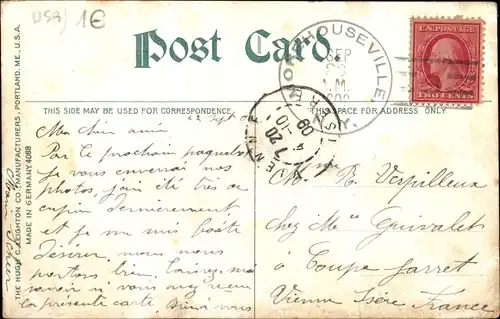 USA) 1€
Post Card
MOREHOUSEVILLE
SEP
A.M.
N.Y.
U.S. POSTAGE
TWO CENTS
THIS SIDE MAY BE USED FOR CORRESPONDENCE.
THIS SPACE FOR ADDRESS ONLY.
VIENNE ISÈRE
7 20
10 09
THE HUGH C. LEIGHTON CO., MANUFACTURERS, PORTLAND, ME., U.S.A.
MADE IN GERMANY 4088
22 Sept 09
Mon cher ami
Par le prochain paquebot
je vous enverrai nos
photos, j'ai été très
dernièrement
et je me suis
désirer nous nous
portons bien,
savoir si vous avez reçu
la présente carte. vous
Mr R. Verpilleux
chez Me Guivalet
à Coupe Jarret
Vienne Isère France